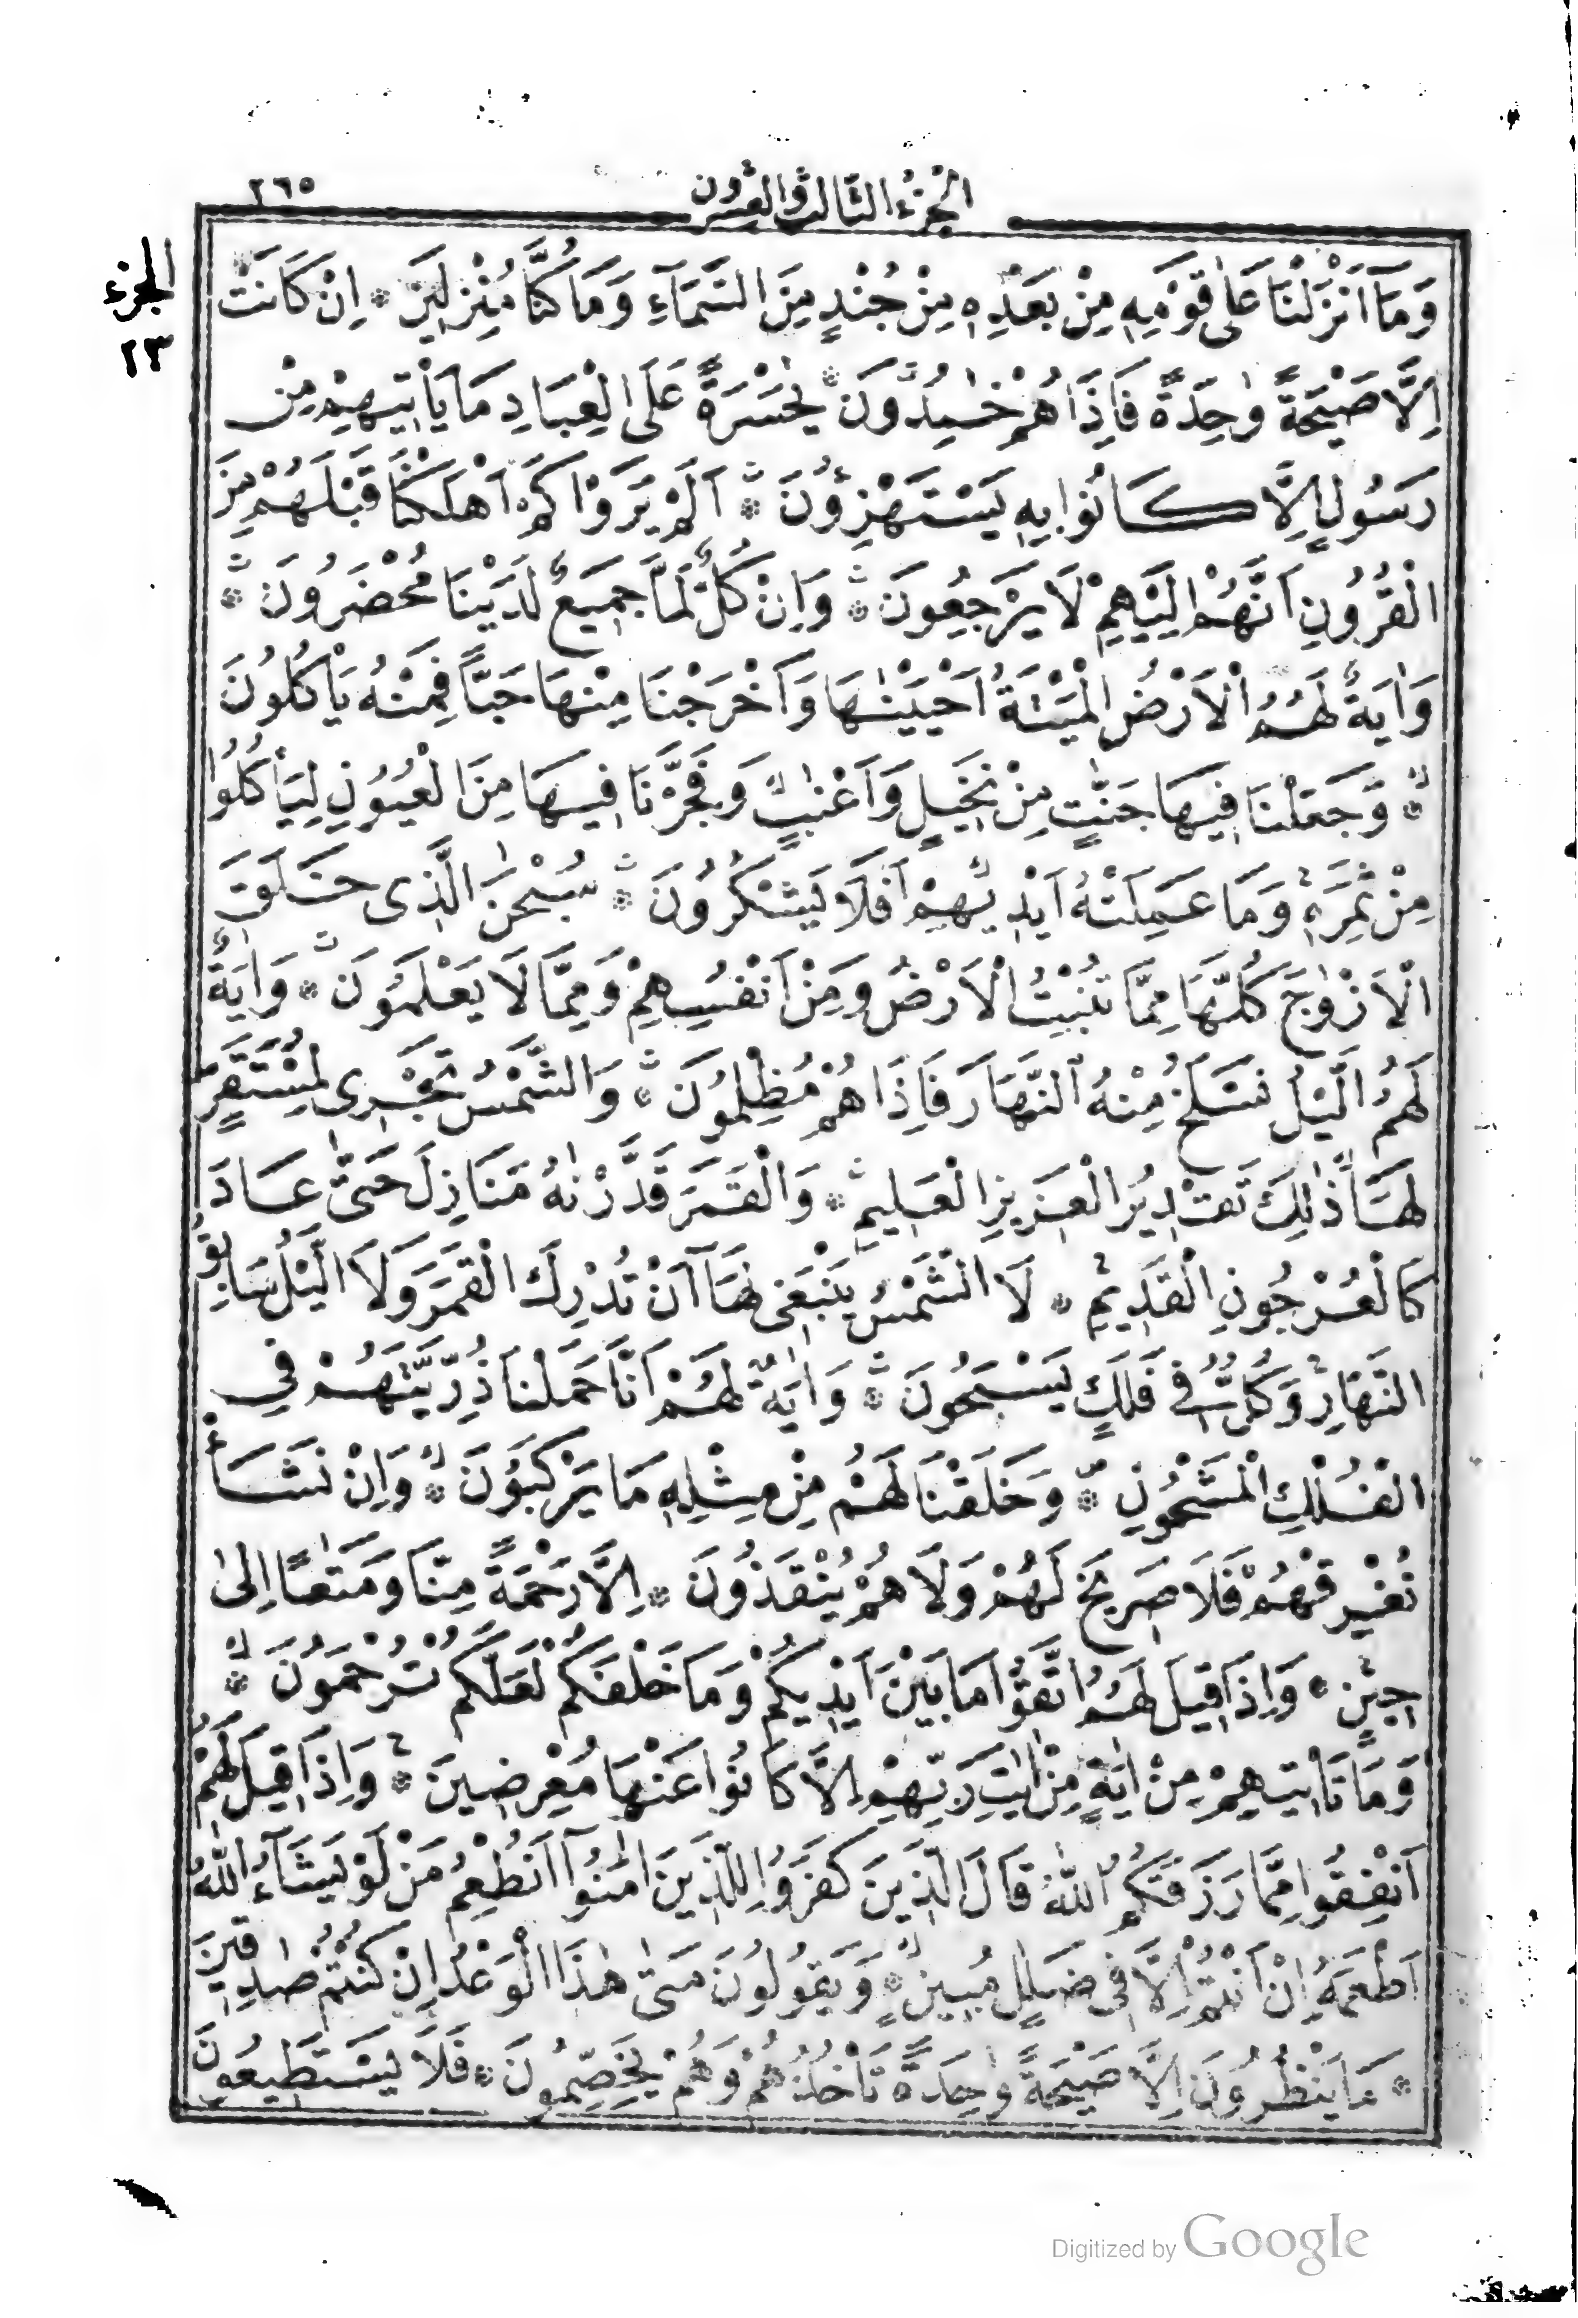 الجزء الثالث والعشرون
٢٦٥
الجزء
٢٣
وَمَآ اَنْزَلْنَا عَلٰى قَوْمِهٖ مِنْ بَعْدِهٖ مِنْ جُنْدٍ مِنَ السَّمَآءِ وَمَا كُنَّا مُنْزِلِينَ ۞ اِنْ كَانَتْ
اِلَّا صَيْحَةً وٰحِدَةً فَاِذَا هُمْ خٰمِدُونَ ۞ يٰحَسْرَةً عَلَى الْعِبَادِ مَا يَأْتِيهِمْ مِنْ
رَسُولٍ اِلَّا كَانُوا بِهٖ يَسْتَهْزِؤُنَ ۞ اَلَمْ يَرَوْا كَمْ اَهْلَكْنَا قَبْلَهُمْ مِنَ
الْقُرُونِ اَنَّهُمْ اِلَيْهِمْ لَا يَرْجِعُونَ ۞ وَاِنْ كُلٌّ لَمَّا جَمِيعٌ لَدَيْنَا مُحْضَرُونَ ۞
وَاٰيَةٌ لَهُمُ الْاَرْضُ الْمَيْتَةُ اَحْيَيْنٰهَا وَاَخْرَجْنَا مِنْهَا حَبًّا فَمِنْهُ يَأْكُلُونَ
۞ وَجَعَلْنَا فِيهَا جَنّٰتٍ مِنْ نَخِيلٍ وَاَعْنٰبٍ وَفَجَّرْنَا فِيهَا مِنَ الْعُيُونِ لِيَأْكُلُوا
مِنْ ثَمَرِهٖ وَمَا عَمِلَتْهُ اَيْدِيهِمْ اَفَلَا يَشْكُرُونَ ۞ سُبْحٰنَ الَّذِى خَلَقَ
الْاَزْوٰجَ كُلَّهَا مِمَّا تُنْبِتُ الْاَرْضُ وَمِنْ اَنْفُسِهِمْ وَمِمَّا لَا يَعْلَمُونَ ۞ وَاٰيَةٌ
لَهُمُ الَّيْلُ نَسْلَخُ مِنْهُ النَّهَارَ فَاِذَا هُمْ مُظْلِمُونَ ۞ وَالشَّمْسُ تَجْرِى لِمُسْتَقَرٍّ
لَهَا ذٰلِكَ تَقْدِيرُ الْعَزِيزِ الْعَلِيمِ ۞ وَالْقَمَرَ قَدَّرْنٰهُ مَنَازِلَ حَتّٰى عَادَ
كَالْعُرْجُونِ الْقَدِيمِ ۞ لَا الشَّمْسُ يَنْبَغِى لَهَآ اَنْ تُدْرِكَ الْقَمَرَ وَلَا الَّيْلُ سَابِقُ
النَّهَارِ وَكُلٌّ فِى فَلَكٍ يَسْبَحُونَ ۞ وَاٰيَةٌ لَهُمْ اَنَّا حَمَلْنَا ذُرِّيَّتَهُمْ فِى
الْفُلْكِ الْمَشْحُونِ ۞ وَخَلَقْنَا لَهُمْ مِنْ مِثْلِهٖ مَا يَرْكَبُونَ ۞ وَاِنْ نَشَأْ
نُغْرِقْهُمْ فَلَا صَرِيخَ لَهُمْ وَلَا هُمْ يُنْقَذُونَ ۞ اِلَّا رَحْمَةً مِنَّا وَمَتٰعًا اِلٰى
حِينٍ ۞ وَاِذَا قِيلَ لَهُمُ اتَّقُوا مَا بَيْنَ اَيْدِيكُمْ وَمَا خَلْفَكُمْ لَعَلَّكُمْ تُرْحَمُونَ ۞
وَمَا تَأْتِيهِمْ مِنْ اٰيَةٍ مِنْ اٰيٰتِ رَبِّهِمْ اِلَّا كَانُوا عَنْهَا مُعْرِضِينَ ۞ وَاِذَا قِيلَ لَهُمْ
اَنْفِقُوا مِمَّا رَزَقَكُمُ اللّٰهُ قَالَ الَّذِينَ كَفَرُوا لِلَّذِينَ اٰمَنُوآ اَنُطْعِمُ مَنْ لَوْ يَشَآءُ اللّٰهُ
اَطْعَمَهُ اِنْ اَنْتُمْ اِلَّا فِى ضَلٰلٍ مُبِينٍ ۞ وَيَقُولُونَ مَتٰى هٰذَا الْوَعْدُ اِنْ كُنْتُمْ صٰدِقِينَ
۞ مَا يَنْظُرُونَ اِلَّا صَيْحَةً وٰحِدَةً تَأْخُذُهُمْ وَهُمْ يَخِصِّمُونَ ۞ فَلَا يَسْتَطِيعُونَ
Digitized by Google